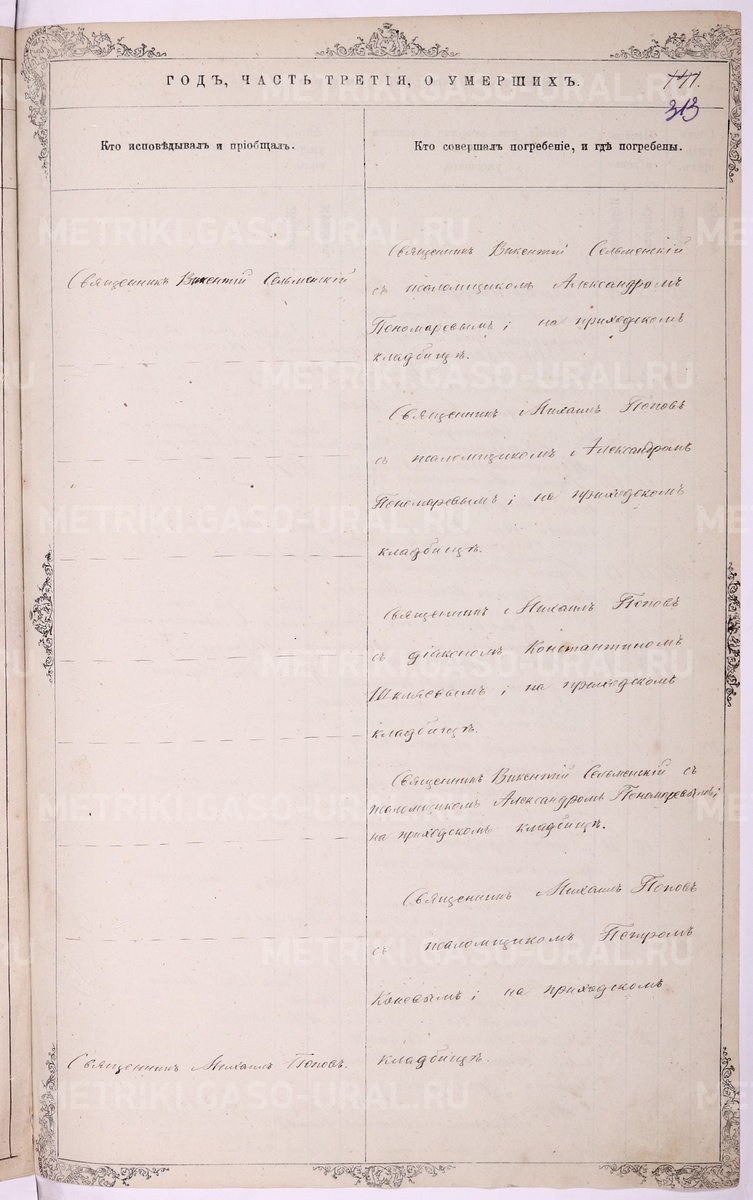 ГОДЪ, ЧАСТЬ ТРЕТІЯ, О УМЕРШИХЪ.
141.
313
Кто исповѣдывалъ и пріобщалъ.
Кто совершалъ погребеніе, и гдѣ погребены.
Священникъ Викентій Сельменскій
Священникъ Викентій Сельменскій
съ псаломщикомъ Александромъ
Пономаревымъ; на приходскомъ
кладбищѣ.
Священникъ Михаилъ Поповъ
съ псаломщикомъ Александромъ
Пономаревымъ; на приходскомъ
кладбищѣ.
Священникъ Михаилъ Поповъ
съ діакономъ Константиномъ
Шкляевымъ; на приходскомъ
кладбищѣ.
Священникъ Викентій Сельменскій съ
псаломщикомъ Александромъ Пономаревымъ;
на приходскомъ кладбищѣ.
Священникъ Михаилъ Поповъ
съ псаломщикомъ Петромъ
Коневымъ; на приходскомъ
Священникъ Михаилъ Поповъ.
кладбищѣ.
METRIKI.GASO-URAL.RU